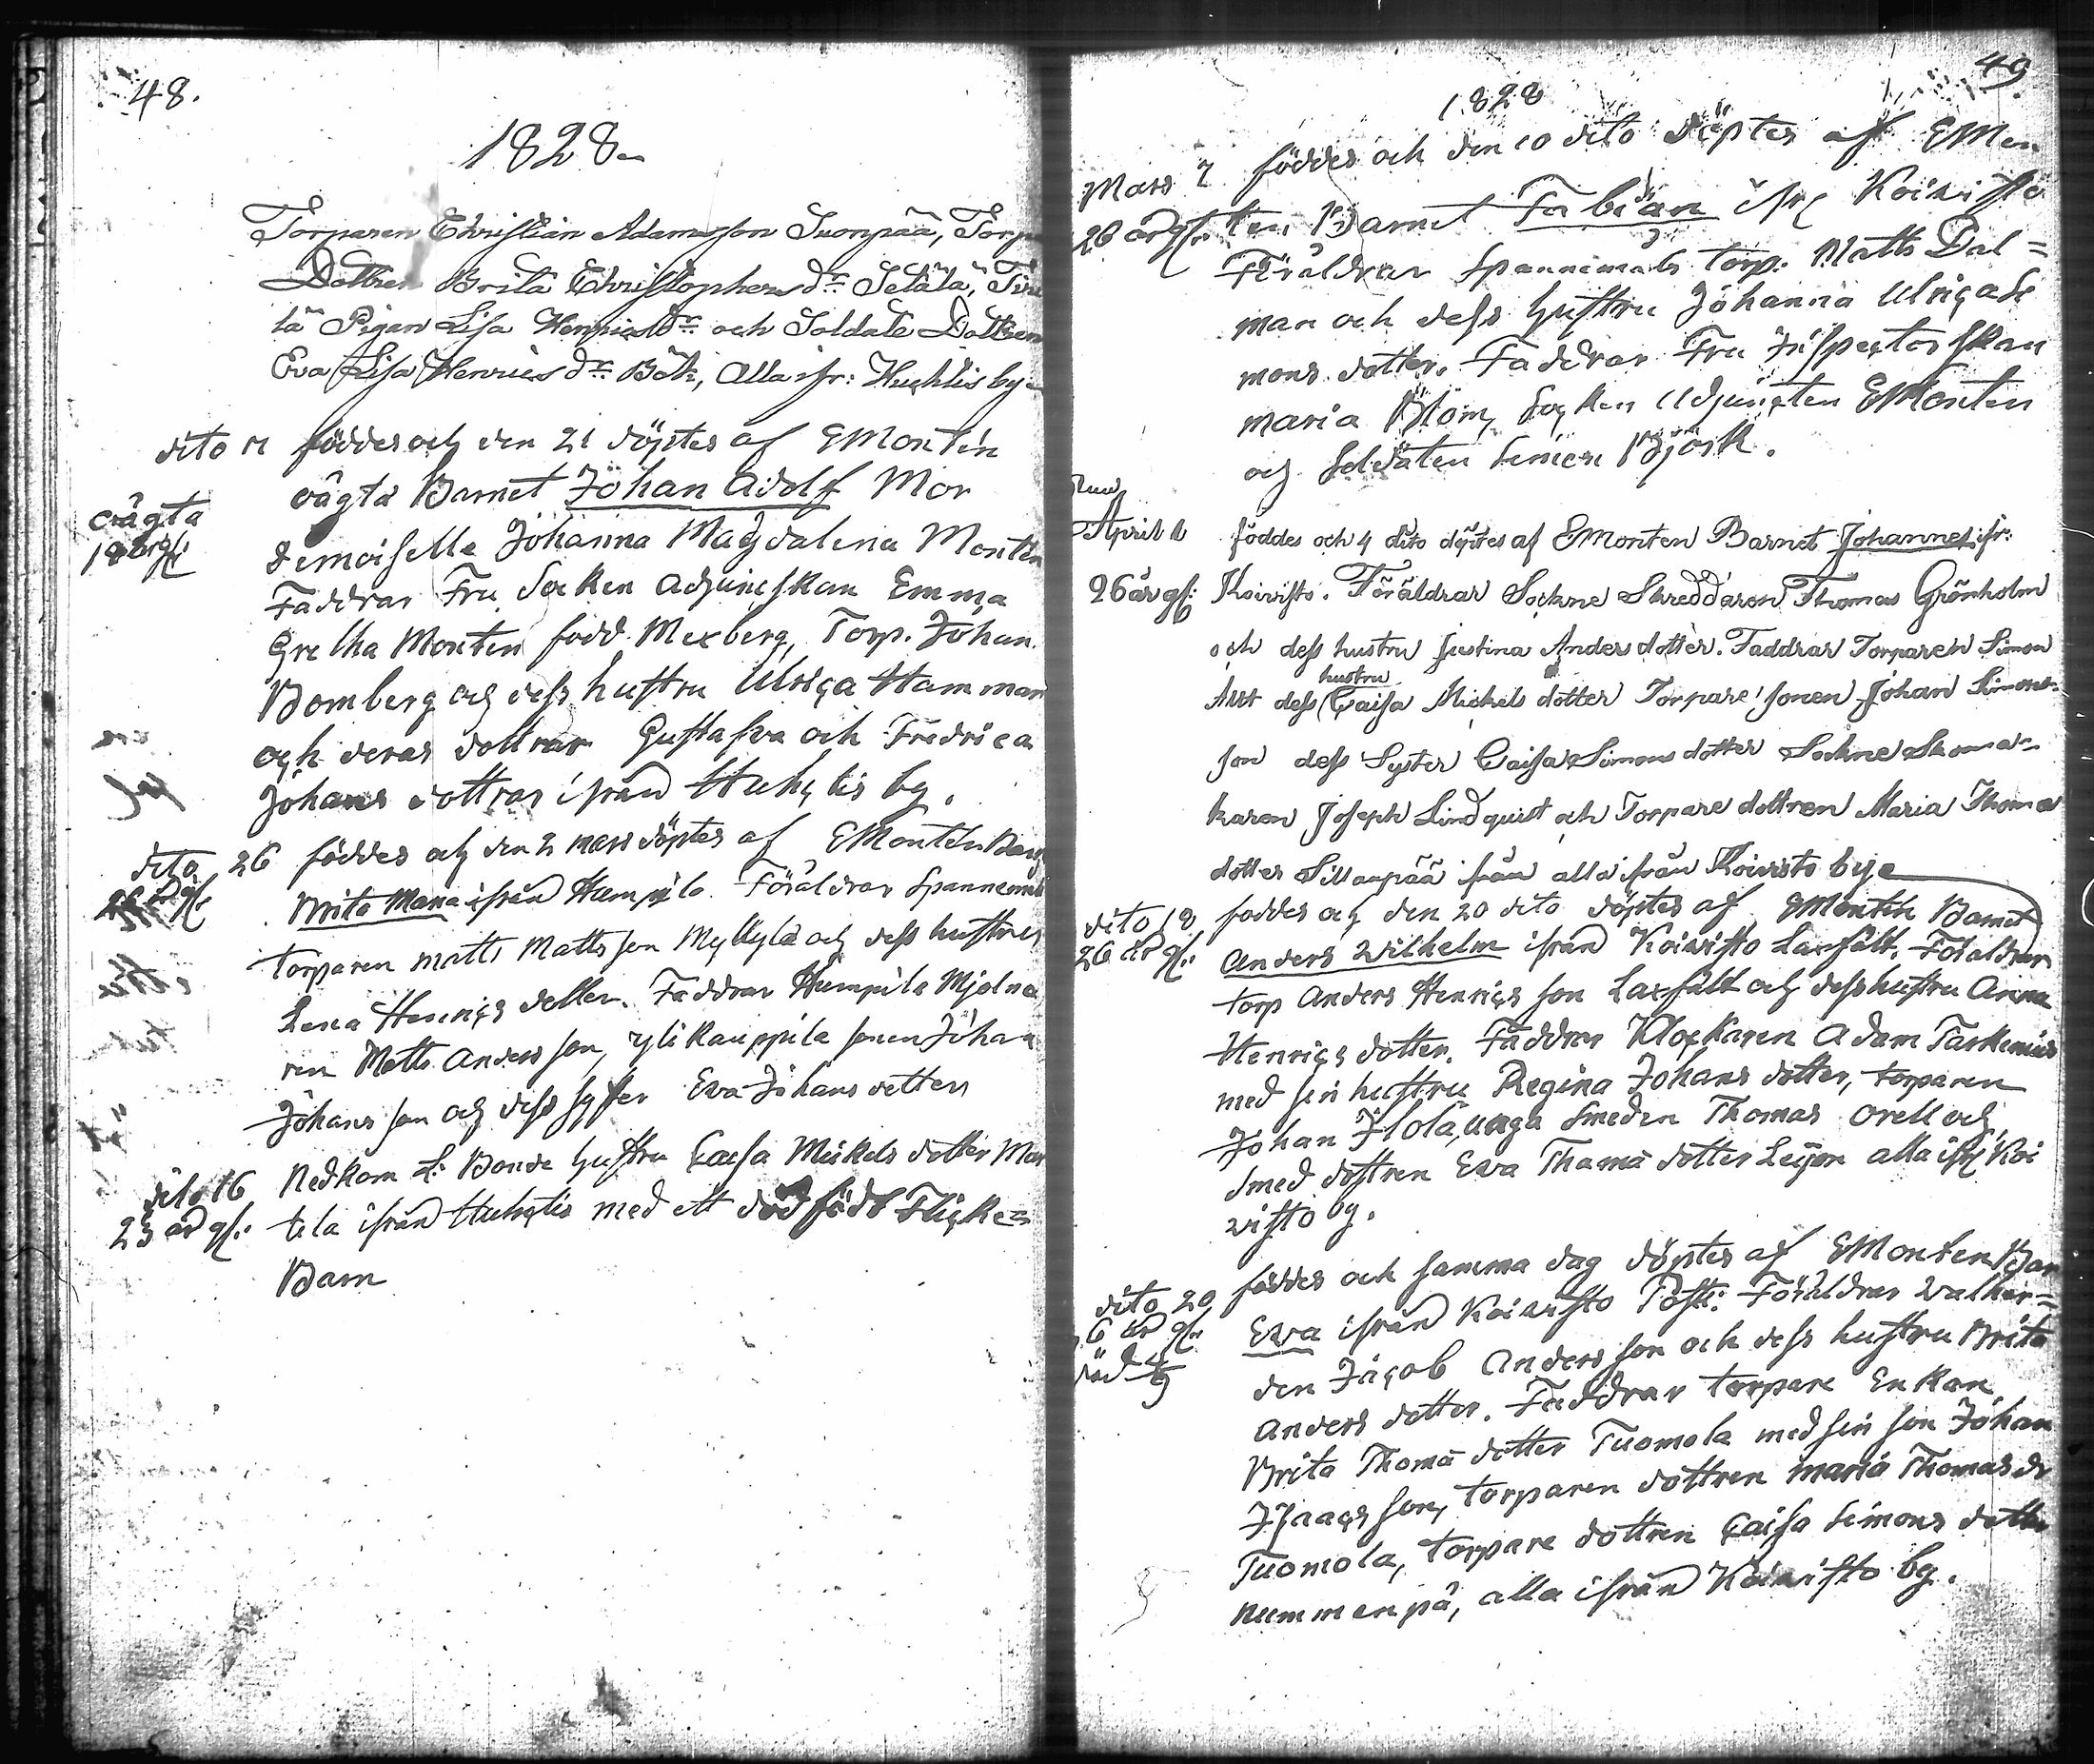 48.
1828
Torparen Christian Adamsson Suonpää, Torp
Dottren Brita Christophers dr Setälä,
lä Pigan Lisa Henrics dr och Soldate Dottren
Eva Lisa Henrics dr Böök, Alla ifr: Huchtis by
dito 11 föddes och den 21 döptes af EMontén
oägta Barnet Johan Adolf Mor
oägta
demoiselle Johanna Magdalena Montén
Faddrar Fru Socken adjunctskan Emma
Gretha Montén född Mexberg, Torp. Johan
Bomberg och dess hustru Ulrica Hamman
och deras dottrar Gustafva och Fredrica
Johans dottrar ifrån Huhctis by.
dito 26 föddes och den 2 mars döptes af EMontén Barn
Brita Maria ifrån Humpila. Föräldrar Spannemåls
torparen Matts Matts son Myllylä och dess hustru
Lena Henrics dotter. Faddrar Humpila Mjölna
ren Matts Anders son, yli Kauppila sonen Johan
Johans son och dess syster Eva Johans dotter
dito 16 Nedkom L: Bonde hustru Caisa Mickels dotter Mar
23 år gl: tela ifrån Huhctis med ett död född Flicke=
Barn
49
1828
Mars 7 föddes och den 10 dito döptes af EMon
26 år gl. ten, Barnet Fabian ifr Koivisto
Föräldrar Spannemåls torp. Matts Dal=
man och dess hustru Johanna Ulrica Si
mons dotter. Faddrar Fru Inspectorskan
Maria Blom, Socken Adjuncten EMontén
och Soldaten Simon Björk.
April 1 föddes och 4 dito döptes af EMonten Barnet Johannes ifr:
26 år gl: Koivisto. Föräldrar Sockne Skreddaren Thomas Grönholm
och dess hustru Justina Anders dotter. Faddrar Torparen Simon
hustru
dess Caisa Mickels dotter Torpare sonen Johan Simons
son dess Syster Caisa Simons dotter Sockne Skoma=
karen Joseph Lindquist och Torpare dottren Maria Thomas
dotter Sillanpää ifrån alla ifrån Koivisto bye
dito 18 föddes och den 20 dito döptes af EMontén Barnet
26 år gl: Anders Wilhelm ifrån Koivisto Laxfält. Föräldrar
torp Anders Henrics son Laxfält och dess hustru Anna
Henrics dotter. Faddrar Klockaren Adam Taskinius
med sin hustru Regina Johans dotter, torparen
Johan Ilola, unga Smeden Thomas Orell och
Smed dottren Eva Thoma dotter Leijon alla ifr Koi
visto by.
dito 20 föddes och samma dag döptes af EMonten Bar
6 år gl: Eva ifrån Koivisto Föräldrar Walhin=
död
den Jacob Anders son och dess hustru Brita
Anders dotter. Faddrar torpare Enkan
Brita Thoma dotter Tuomola med sin son Johan
Isaacs son, torparen dottren Maria Thomas dr
Tuomola, torpare dottren Caisa Simons dotter
Nummenpä, alla ifrån Koivisto by.